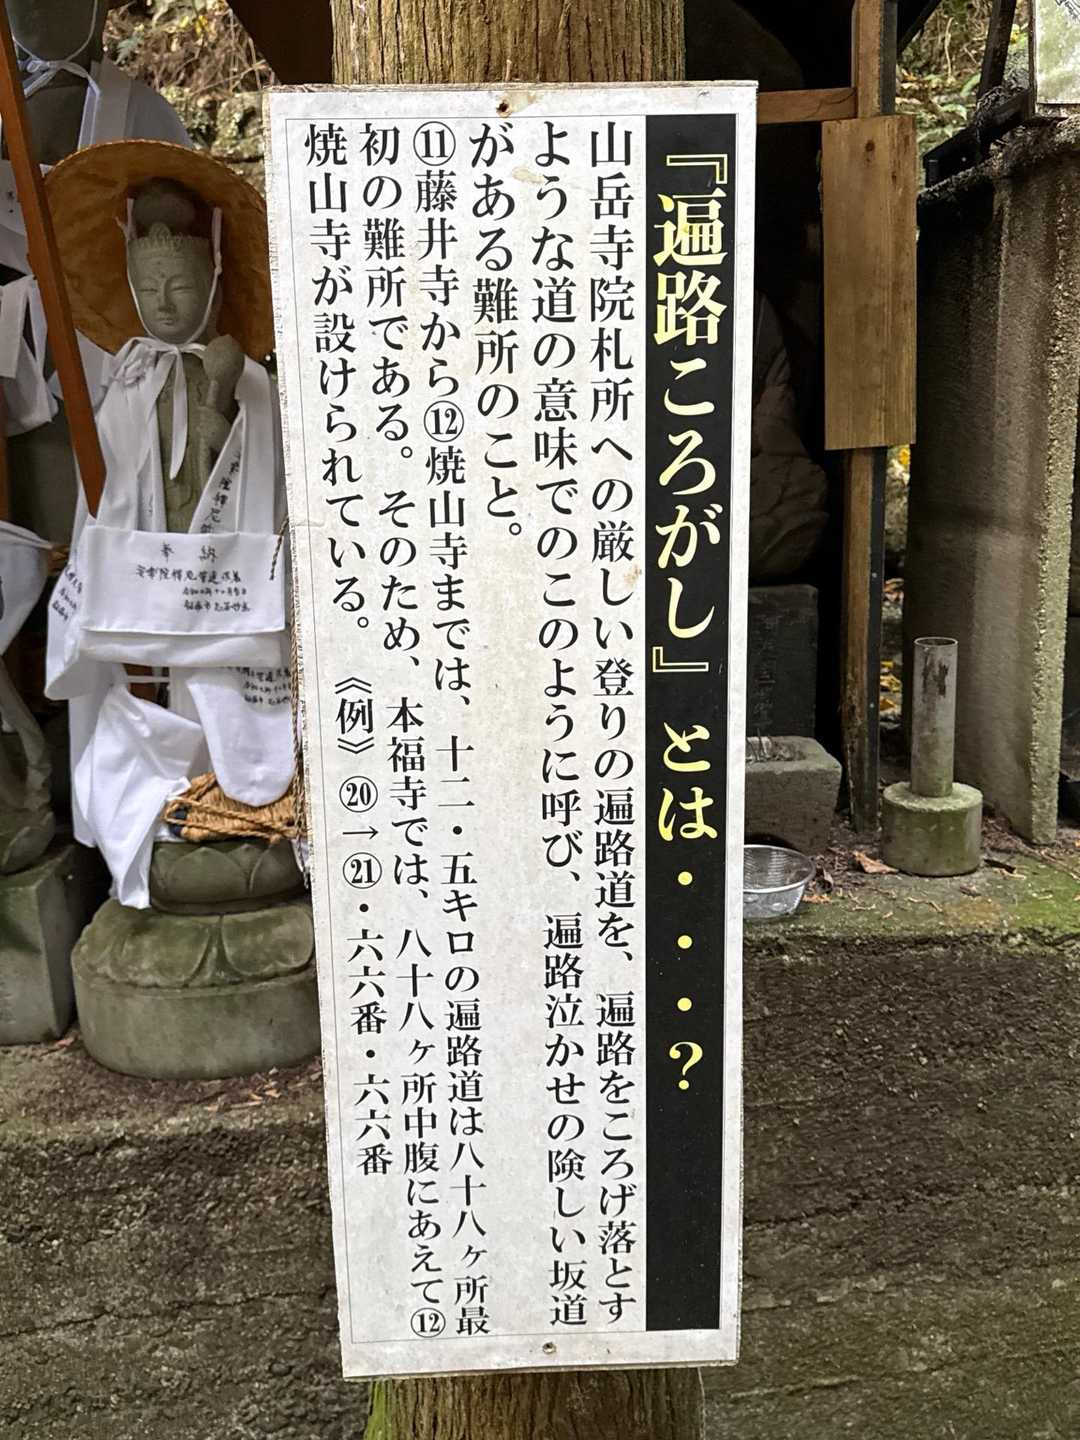 『遍路ころがし』とは・・・？
山岳寺院札所への厳しい登りの遍路道を、遍路をころげ落とす
ような道の意味でのこのように呼び、遍路泣かせの険しい坂道
がある難所のこと。
⑪藤井寺から⑫焼山寺までは、十二・五キロの遍路道は八十八ヶ所最
初の難所である。そのため、本福寺では、八十八ヶ所中腹にあえて⑫
焼山寺が設けられている。《例》⑳→㉑・六六番・六六番
奉納